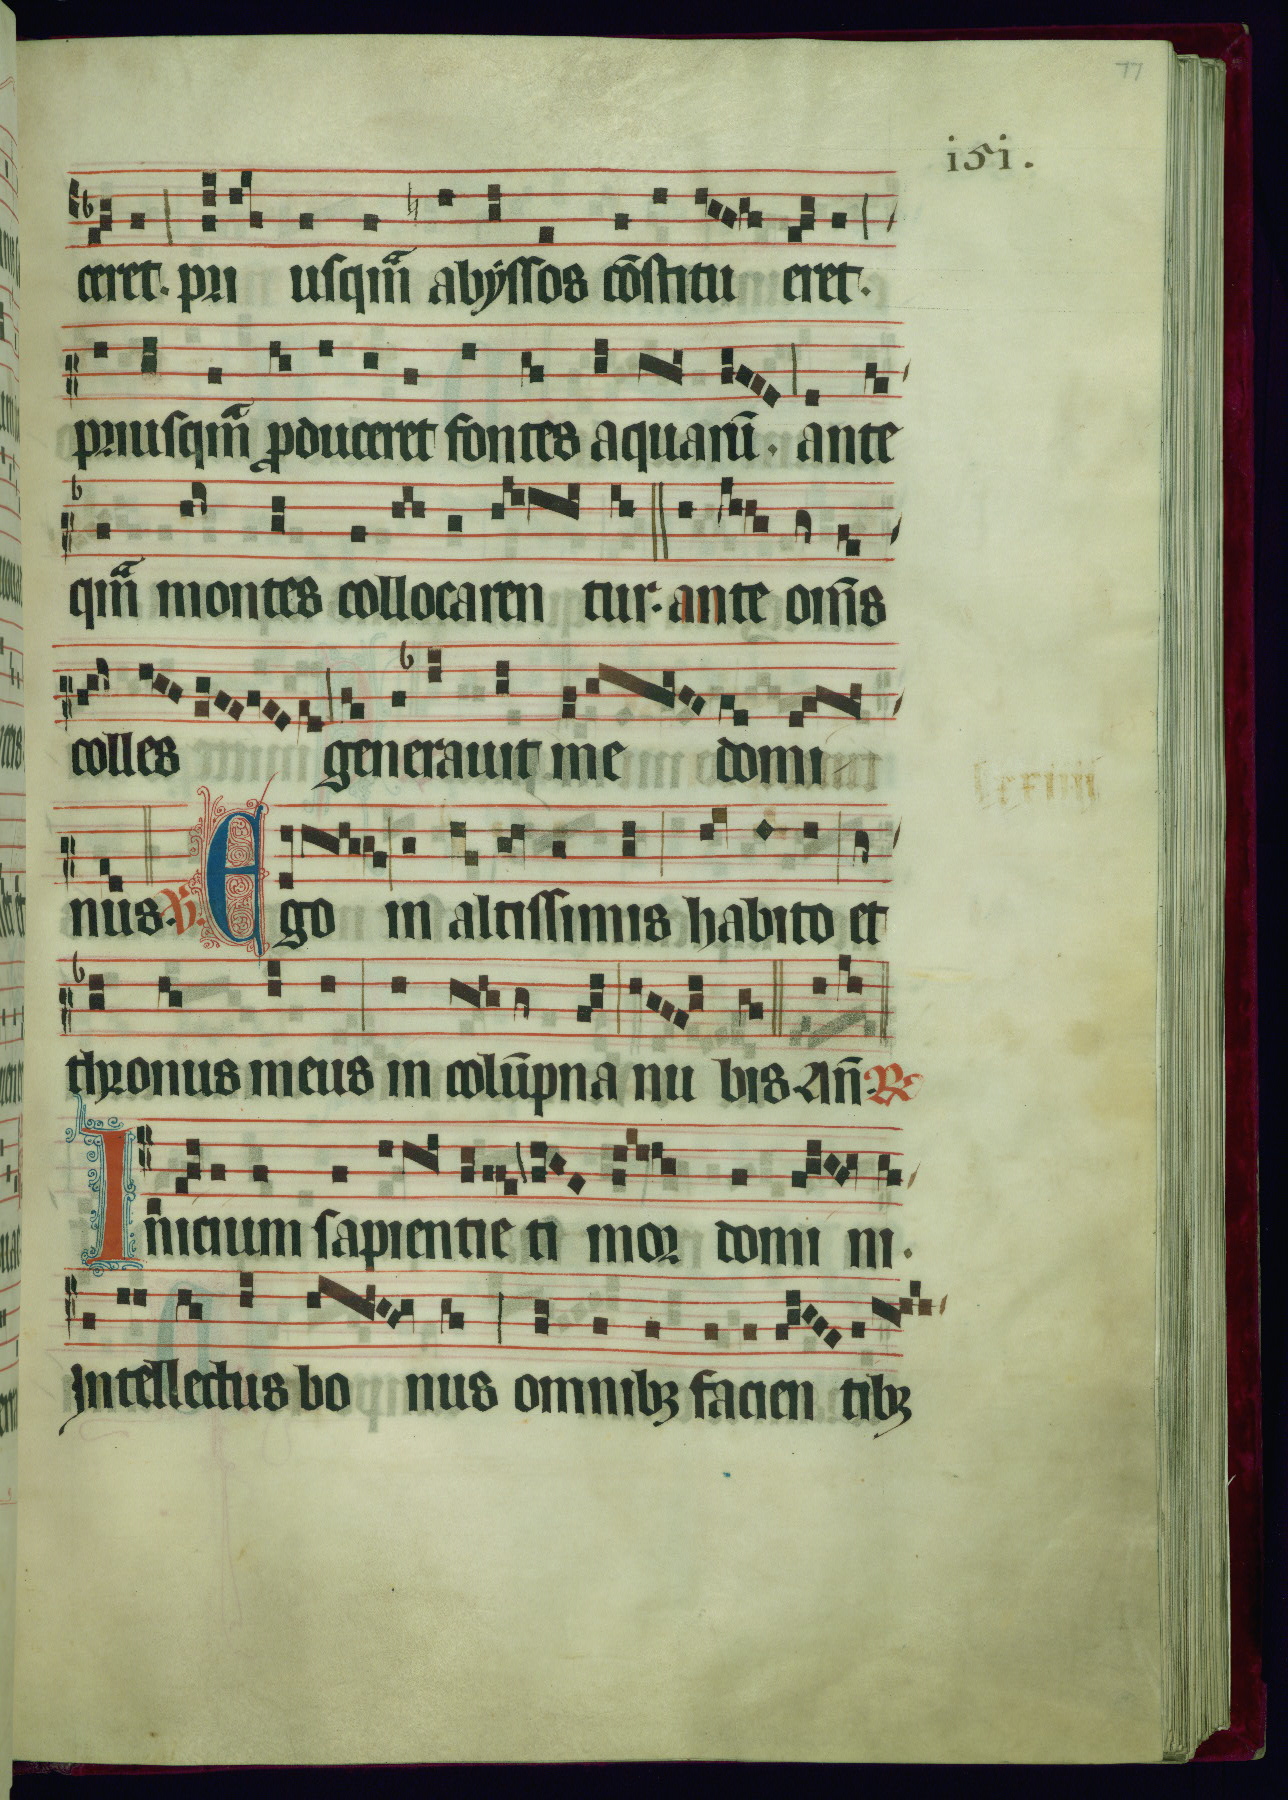 77
151.
ceret. pri usqm̃ abÿssos cõstitu eret.
priusqm̃ ꝓduceret fontes aquarũ. ante
qm̃ montes collocaren tur. ante om̃s
colles generauit me domi
nus. ℣. Ego in altissimis habito et
thronus meus in colũpna nu bis. An̄. ℟
Inicium sapientie ti mor domi ni.
Intellectus bo nus omnibꝫ facien tibꝫ